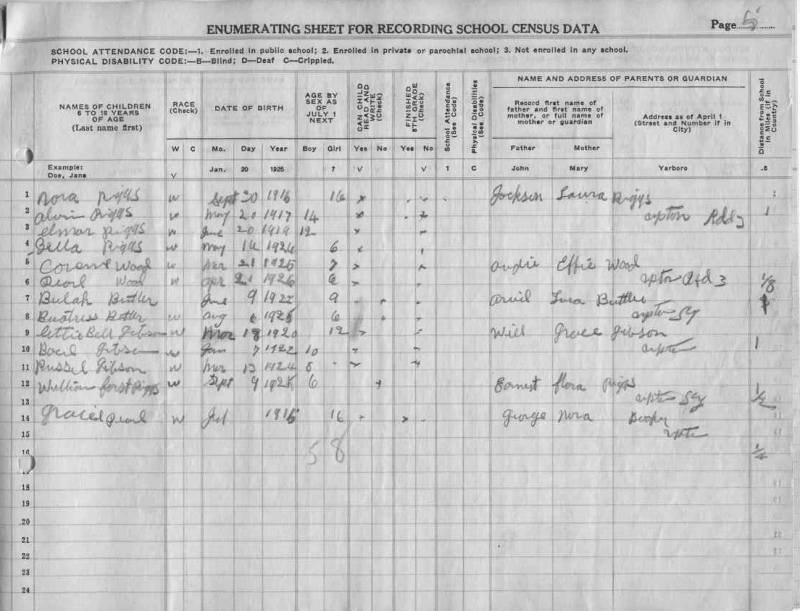 ENUMERATING SHEET FOR RECORDING SCHOOL CENSUS DATA
Page 5
SCHOOL ATTENDANCE CODE:—1. Enrolled in public school; 2. Enrolled in private or parochial school; 3. Not enrolled in any school.
PHYSICAL DISABILITY CODE:—B—Blind; D—Deaf C—Crippled.
NAMES OF CHILDREN 6 TO 18 YEARS OF AGE (Last name first)
RACE (Check)
DATE OF BIRTH
AGE BY SEX AS OF JULY 1 NEXT
CAN CHILD READ AND WRITE (Check)
FINISHED 8TH GRADE (Check)
School Attendance (See Code)
Physical Disabilities (See Code)
NAME AND ADDRESS OF PARENTS OR GUARDIAN
Record first name of father and first name of mother, or full name of mother or guardian
Address as of April 1 (Street and Number if in City)
Distance from School in Miles (if in Country)
W C Mo. Day Year Boy Girl Yes No Yes No Father Mother
Example: Doe, Jane V Jan. 20 1925 7 V V 1 C John Mary Yarboro .5
1 Nora Riggs w Sept 20 1916 16 Jackson Laura Riggs
2 Alvin Riggs w May 20 1917 14 1
3 Elmer Riggs w June 20 1919 12
4 Bella Riggs w May 14 1924 6
5 Wood w Mar 21 1925 7 Audie Effie Wood
6 Pearl Wood w Apr 21 1926 6 Rfd 3 1/8
7 Bulah Butler June 9 1922 9 Butler
8 Butler w Aug 6 1925 6 Ky
9 Bell Gibson w Mar 18 1920 12 Will Grace Gibson
10 Gibson w Jan 7 1922 10 1
11 Russel Gibson w Mar 13 1924 8
12 Riggs w Sept 9 1925 6 Earnest Flora Riggs
13 Ky 1/2
14 Pearl w Jul 1915 16 George Nora
15
16 58 1/2
17
18
19
20
21
22
23
24